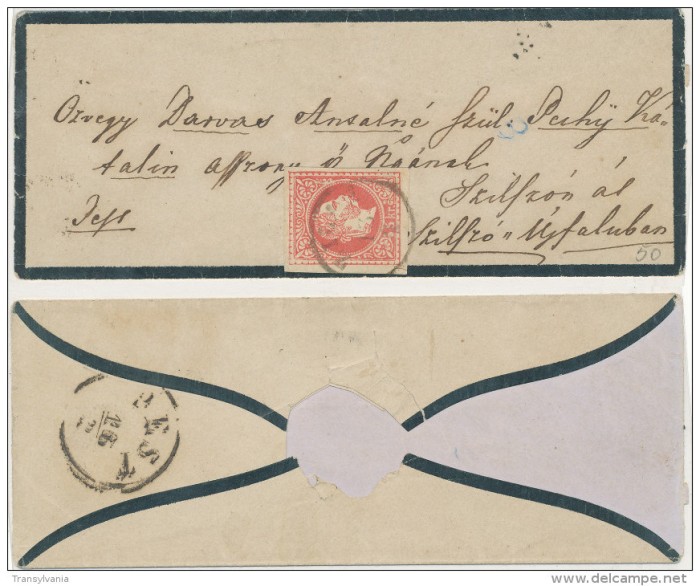 Özvegy Darvas Antalné szül. Pechÿ Ka-
talin asszony ő Nagának
Szilszón ál
Pest Szilszó-Ujfaluban
50
PEST
15
Transylvania
delcampe.net